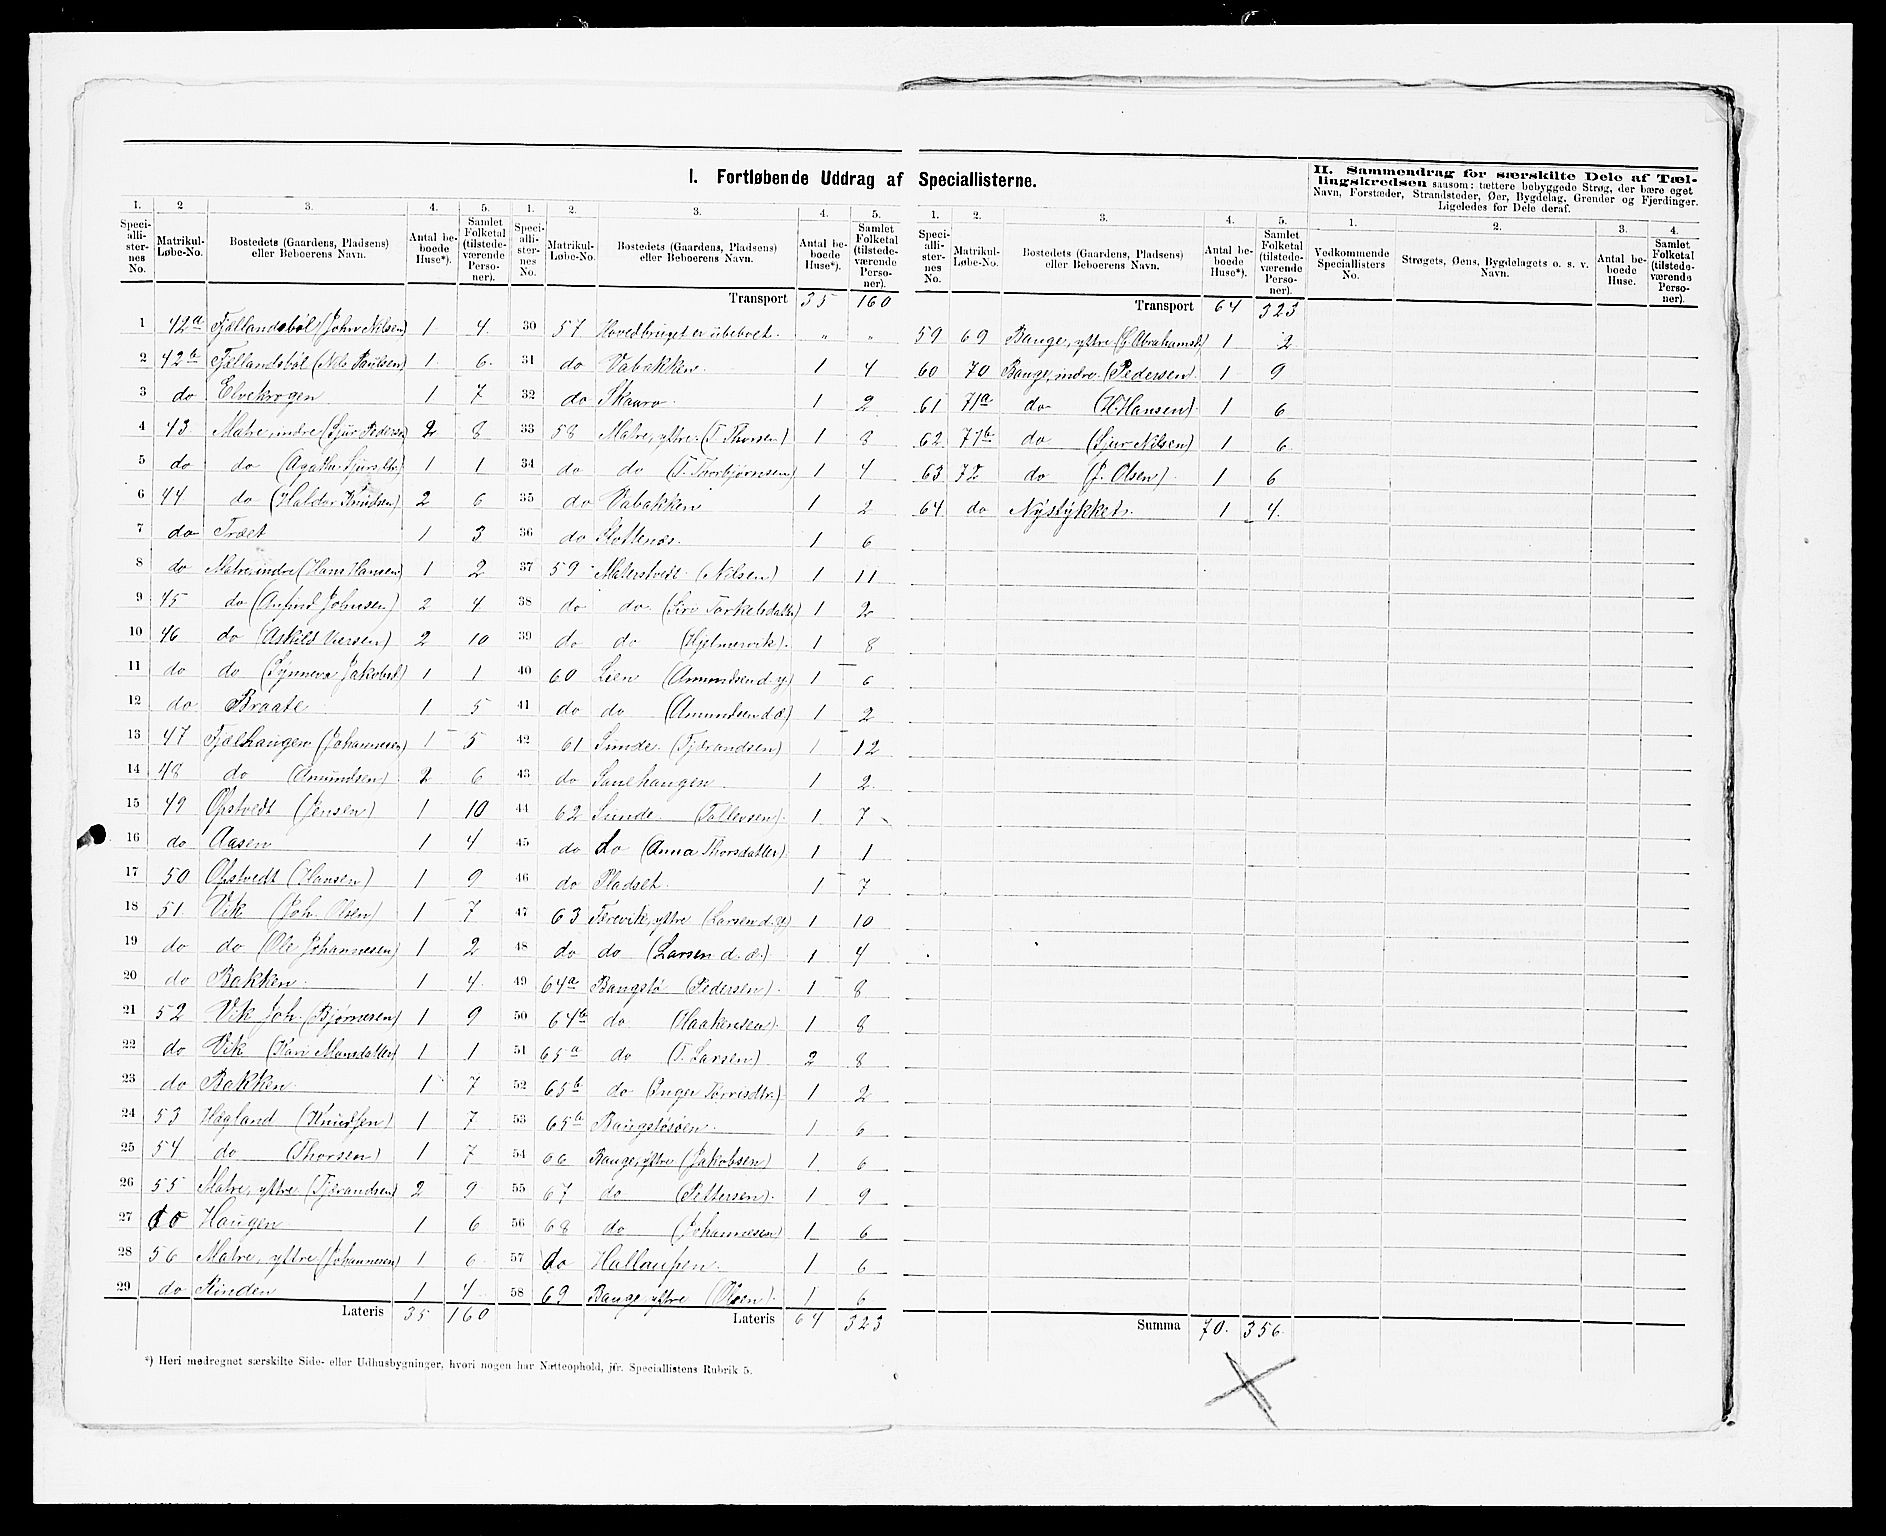 I. Fortløbende Uddrag af Speciallisterne.
II. Sammendrag for særskilte Dele af Tæl-
lingskredsen saasom: tættere bebyggede Strøg, der bære eget
Navn, Forstæder, Strandsteder, Øer, Bygdelag, Grender og Fjerdinger.
Ligeledes for Dele deraf.
1. 2 3. 4. 5.
Speciallisternes No. Matrikul-Løbe-No. Bostedets (Gaardens, Pladsens) eller Beboerens Navn. Antal beboede Huse*). Samlet Folketal (tilstedeværende Personer).
1 42a Fjællandsböl (John Nilsen) 1 4
2 42b Fjællandsböl (Nils Paulsen) 1 6
3 do Elvekrogen 1 7
4 43 Matre, indre (Sjur Pedersen) 2 8
5 do do (Agatha Sjursdtr) 1 1
6 44 do (Haldor Knudsen) 2 6
7 do Træet 1 3
8 do Matre, indre (Hans Hansen) 1 2
9 45 do (Anfind Johnsen) 2 4
10 46 do (Askild Iversen) 2 10
11 do do (Synneva Jakobsd) 1 1
12 do Braate 1 5
13 47 Fjælhaugen (Johannesen) 1 5
14 48 do (Amundsen) 2 6
15 49 Opstvedt (Jensen) 1 10
16 do Aasen 1 4
17 50 Opstvedt (Hansen) 1 9
18 51 Vik (Joh. Olsen) 1 7
19 do do (Ole Johannesen) 1 2
20 do Bakken 1 4
21 52 Vik Joh. (Bjørnesen) 1 9
22 do Vik (Kari Monsdatter) 1 1
23 do Bakken 1 7
24 53 Høgland (Knudsen) 1 7
25 54 do (Thorsen) 1 7
26 55 Matre, yttre (Tjærandsen) 2 9
27 do Haugen 1 6
28 56 Matre, yttre (Johannesen) 1 6
29 do Rinden 1 4
Lateris 35 160
1. 2. 3. 4. 5.
Speciallisternes No. Matrikul-Løbe-No. Bostedets (Gaardens, Pladsens) eller Beboerens Navn. Antal beboede Huse*). Samlet Folketal (tilstedeværende Personer).
Transport 35 160
30 57 Hovedbruget er ubeboet. " "
31 do Vabakken 1 4
32 do Skauro 1 2
33 58 Matre, yttre (T. Thorsen) 1 8
34 do do (T. Thorbjørnsen) 1 4
35 do Vabakken 1 2
36 do Slottenæs 1 6
37 59 Materstvedt (Nilsen) 1 11
38 do do (Siri Torkelsdatter) 1 2
39 do do (Hjelmervik) 1 8
40 60 Lien (Amundsen d. y.) 1 6
41 do do (Amundsen d. æ) 1 2
42 61 Sunde (Tjærandsen) 1 12
43 do Sanehaugen 1 2
44 62 Sunde (Tollevsen) 1 7
45 do do (Anna Thorsdatter) 1 1
46 do Pladset 1 7
47 63 Færevik, yttre (Larsen d. y) 1 10
48 do do (Larsen d. æ.) 1 4
49 64a Baugstø (Pedersen) 1 8
50 64b do (Haakensen) 1 8
51 65a do (T. Larsen) 2 8
52 65b do (Inger Torrisdtr.) 1 2
53 65b Baugstøsøen 1 6
54 66 Bauge, yttre (Jakobsen) 1 6
55 67 do (Pettersen) 1 9
56 68 do (Johannesen) 1 6
57 do Hallaupen 1 6
58 69 Bauge, yttre (Olsen) 1 6
Lateris 64 323
1. 2. 3. 4. 5.
Speciallisternes No. Matrikul-Løbe-No. Bostedets (Gaardens, Pladsens) eller Beboerens Navn. Antal beboede Huse*). Samlet Folketal (tilstedeværende Personer).
Transport 64 323
59 69 Bauge, yttre (Abrahamsd.) 1 2
60 70 Bauge, indre (Pedersen) 1 9
61 71a do (H. Hansen) 1 6
62 71b do (Sjur Nilsen) 1 6
63 72 do (J. Olsen) 1 6
64 do Nystykket 1 4
Summa 70. 356.
1. 2. 3. 4.
Vedkommende Speciallisters No. Strøgets, Øens, Bygdelagets o. s. v. Navn. Antal beboede Huse. Samlet Folketal (tilstedeværende Personer).
*) Heri medregnet særskilte Side- eller Udhusbygninger, hvori nogen har Natteophold, jfr. Speciallistens Rubrik 5.